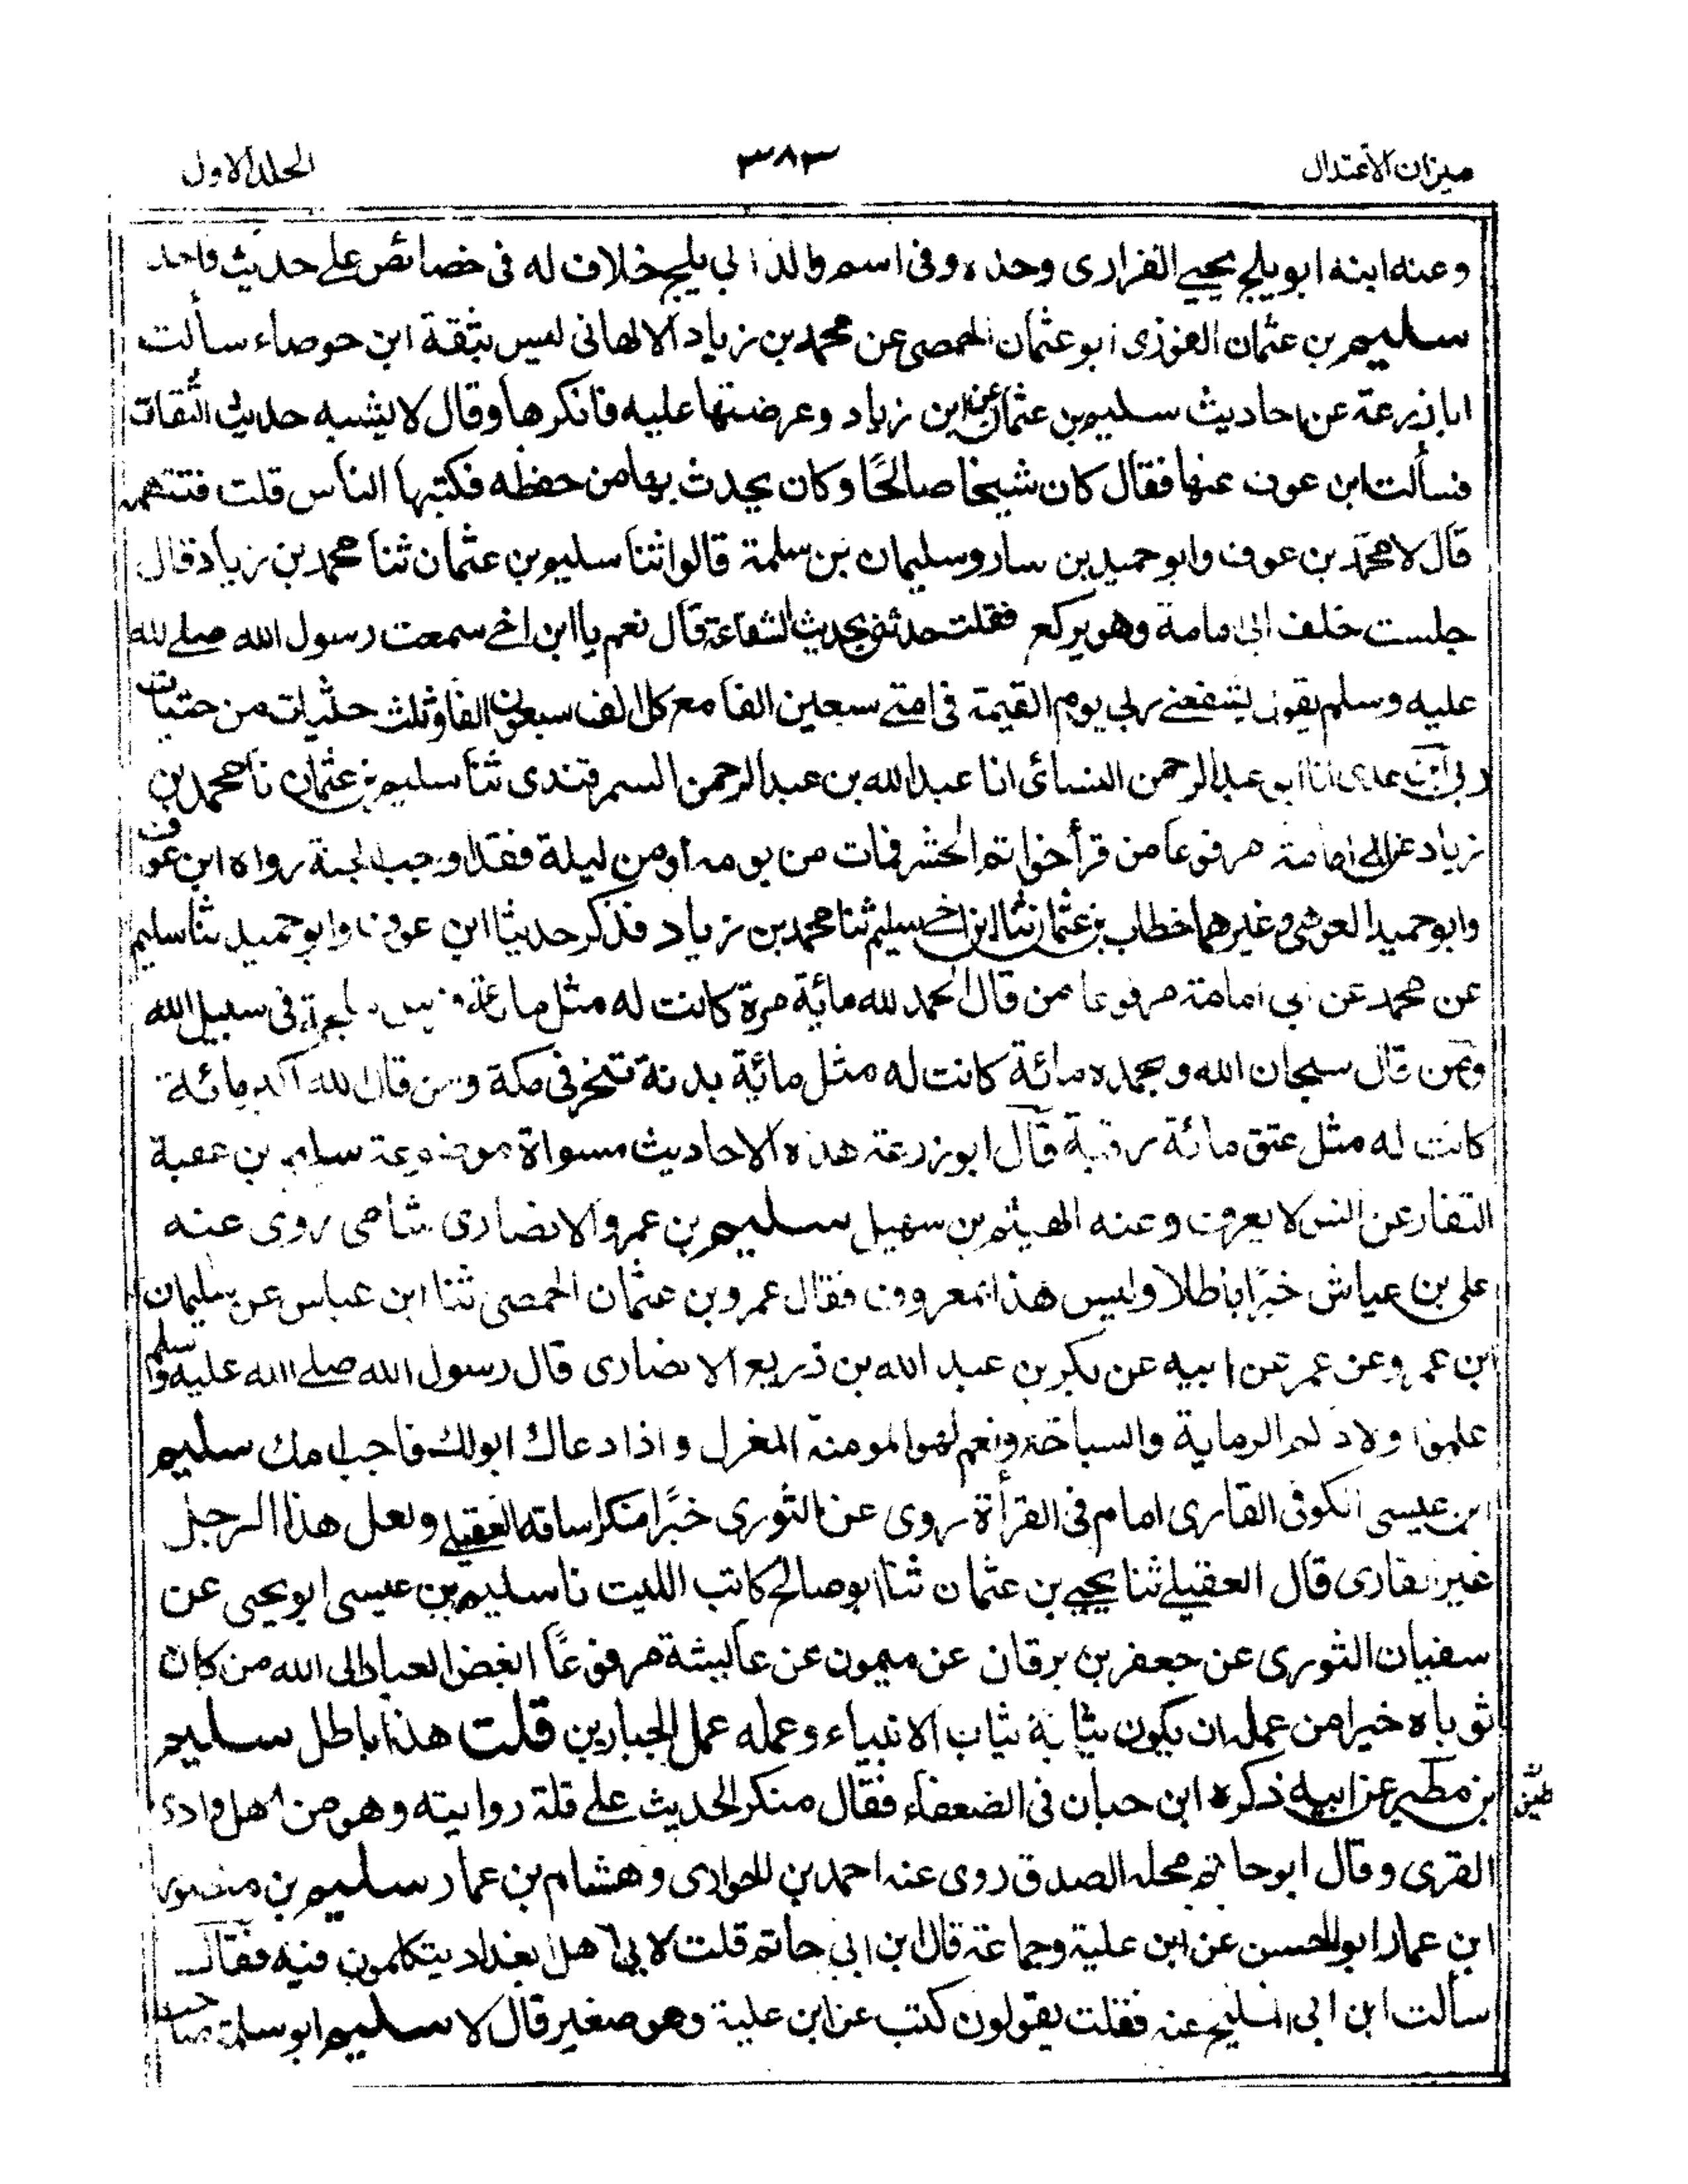 ميزان الاعتدال ٣٨٣ الجلد الاول
وعنه ابنه ابو بلج يحيى الفزارى وحده وفى اسم والد ابي بلج خلاف له فى خصائص على حديث واحد
سليم بن عثمان الفوزى ابو عثمان الحمصى عن محمد بن زياد الالهانى ليس بثقة ابن حوصاء سألت
ابا زرعة عن احاديث سليم بن عثمان عن ابن زياد وعرضتها عليه فانكرها وقال لا يشبه حديث الثقات
فسألت ابن عوف عنها فقال كان شيخا صالحًا وكان يحدث بها من حفظه فكتبها الناس قلت فتتهمه
قال لا محمد بن عوف وابو حميد بن سار وسليمان بن سلمة قالوا ثنا سليم بن عثمان ثنا محمد بن زياد قال
جلست خلف ابى امامة وهو يركع فقلت حدثنى بحديث الشفاعة قال نعم يا ابن اخى سمعت رسول الله صلى الله
عليه وسلم يقول يشفعنى ربى يوم القيمة فى امتى سبعين الفا مع كل الف سبعون الفا وثلث حثيات من حثيات
ربى ابن عدى انا ابو عبد الرحمن النسائى انا عبد الله بن عبد الرحمن السمرقندى ثنا سليم بن عثمان نا محمد بن
زياد عن ابى امامة مرفوعا من قرأ خواتم الحشر فمات من يومه او من ليلة فقد اوجب الجنة رواه ابن عوف
وابو حميد العوهى وغيرهما خطاب بن عثمان ثنا ابن اخى سليم ثنا محمد بن زياد فذكر حديثا ابن عوف وابو حميد ثنا سليم
عن محمد عن ابي امامة مرفوعا من قال الحمد لله مائة مرة كانت له مثل مائة فرس ملجمة فى سبيل الله
ومن قال سبحان الله وبحمده مائة كانت له مثل مائة بدنة تنحر فى مكة ومن قال الله اكبر مائة
كانت له مثل عتق مائة رقبة قال ابو زرعة هذه الاحاديث مسواة موضوعة سليم بن عقبة
التفار عن انس لا يعرف وعنه الهيثم بن سهيل سليم بن عمرو الانصارى شامى روى عنه
على بن عياش خبرًا باطلا وليس هذا بمعروف فقال عمرو بن عثمان الحمصى ثنا ابن عباس عن سليمان
ابن عمرو عن عمر عن ابيه عن بكر بن عبد الله بن ذريع الانصارى قال رسول الله صلى الله عليه وسلم
علموا اولادكم الرماية والسباحة ونعم لهو المومنة المغزل واذا دعاك ابواك فاجب امك سليم
ابن عيسى الكوفى القارى امام فى القرأة روى عن الثورى خبرًا منكرا ساقه العقيلى ولعل هذا الرجل
غير القارى قال العقيلى ثنا يحيى بن عثمان ثنا ابو صالح كاتب الليث نا سليم بن عيسى ابو يحيى عن
سفيان الثورى عن جعفر بن برقان عن ميمون عن عايشة مرفوعًا ابغض العباد الى الله من كان
ثوباه خيرا من عمله ان يكون ثيابة ثياب الانبياء وعمله عمل الجبارين قلت هذا باطل سليم
بن مطير عن ابيه ذكره ابن حبان فى الضعفاء فقال منكر الحديث على قلة روايته وهو من اهل وادى
القرى وقال ابو حاتم محله الصدق روى عنه احمد بن للحوارى وهشام بن عمار سليم بن منصور
ابن عمار ابو الحسن عن ابن علية وجماعة قال ابن ابى حاتم قلت لابى اهل بغداد يتكلمون فيه فقال
سألت ابن ابى المليح عنه فقلت يقولون كتب عن ابن علية وهو صغير قال لا سليم ابو سلمة صاحب